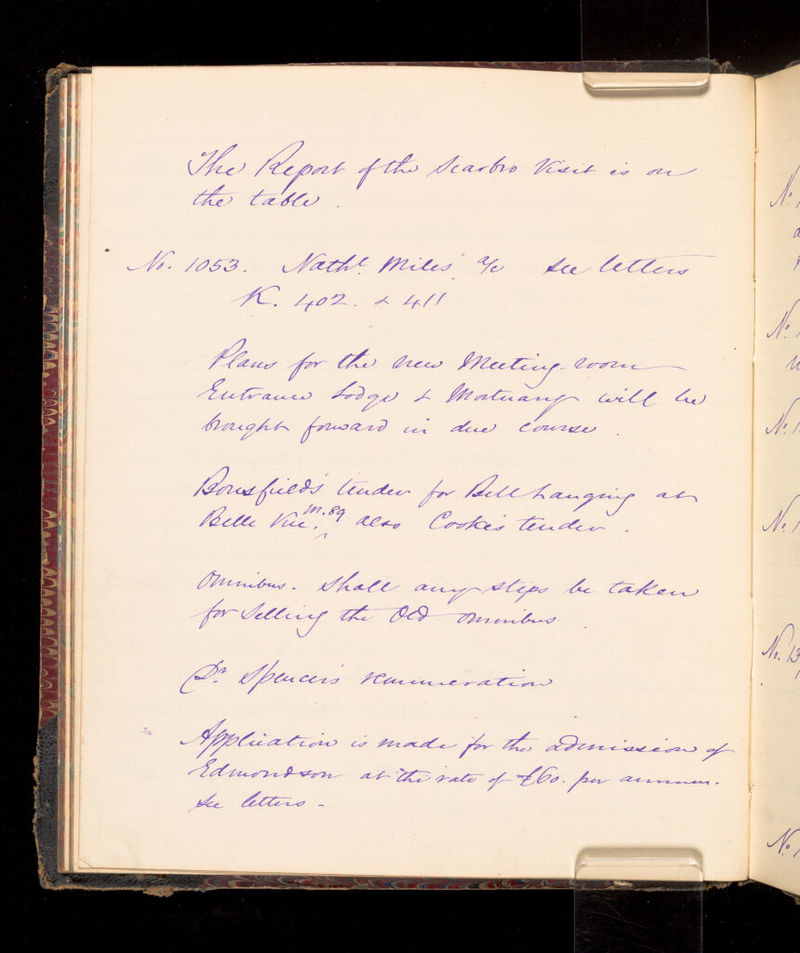 The Report of the Scarbro Visit is on
the table.
No. 1053. Nathl. Miles' a/c see letters
K. 402. & 411
Plans for the new Meeting-room
Entrance Lodge & Mortuary will be
brought forward in due course.
Bousfield's tender for Bell hanging at
Belle Vue. M.89 also Cooke's tender.
Omnibus. Shall any steps be taken
for Selling the Old Omnibus.
Dr. Spencer's remuneration
Application is made for the admission of
Edmondson at the rate of £60. per annum.
see letters -
No.
No.
No.
No.
No. 13
No.